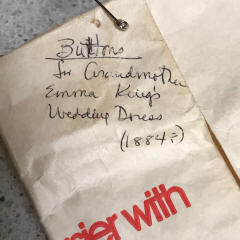 Buttons
for Grandmother
Emma King's
Wedding Dress
(1884?)
sier with